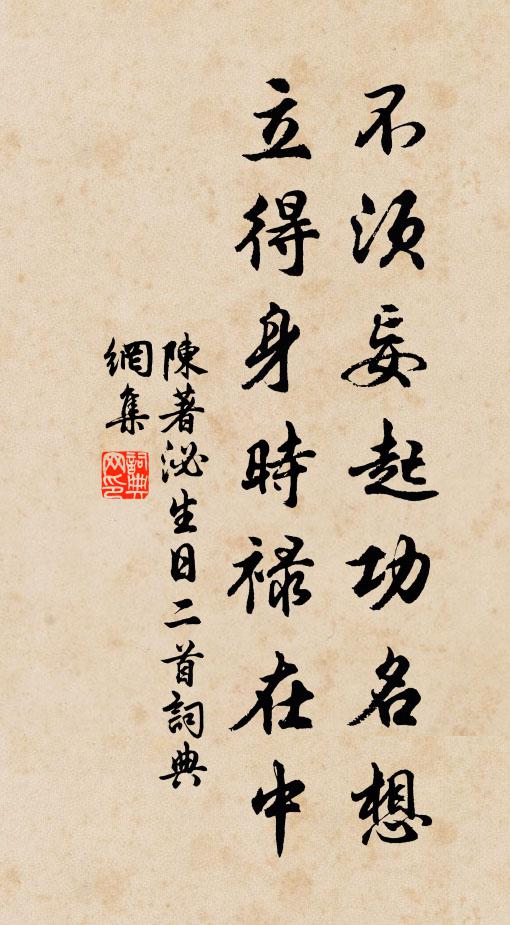 不須妄起功名想
立得身時祿在中
陳著泌生日二首詞典
網集
詞典網印